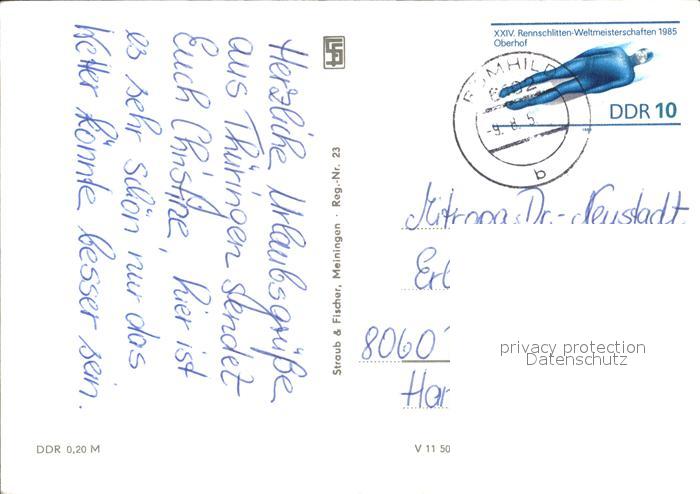 XXIV. Rennschlitten-Weltmeisterschaften 1985
Oberhof
DDR 10
RÖMHILD
6602
-9.8.5
b
Herzliche Urlaubsgrüße
aus Thüringen sendet
Euch Christine, hier ist
es sehr schön, nur das
Wetter könnte besser sein.
Straub & Fischer, Meiningen · Reg.-Nr. 23
Mitropa Dr.-Neustadt
8060
privacy protection
Datenschutz
DDR 0,20 M
V 11 50